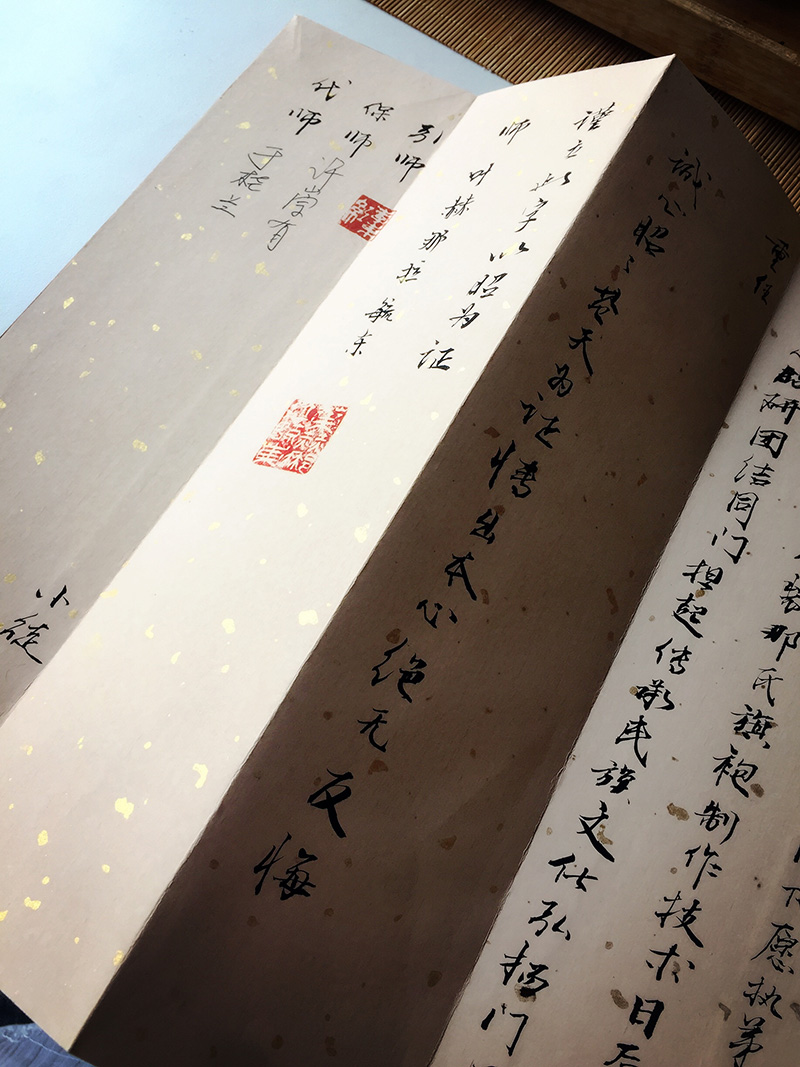 愿执弟
那氏旗袍制作技术日后
研团结同门担起传承民族文化弘扬门
重任
诚心昭々苍天为证情出本心绝无反悔
谨立此字以昭为证
师 叶赫那拉 毓
引师
保师 许崇有
代师 于 兰
小徒